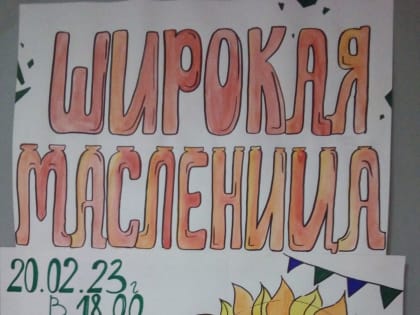 ШИРОКАЯ
МАСЛЕНИЦА
20.02.23г
В 18.00